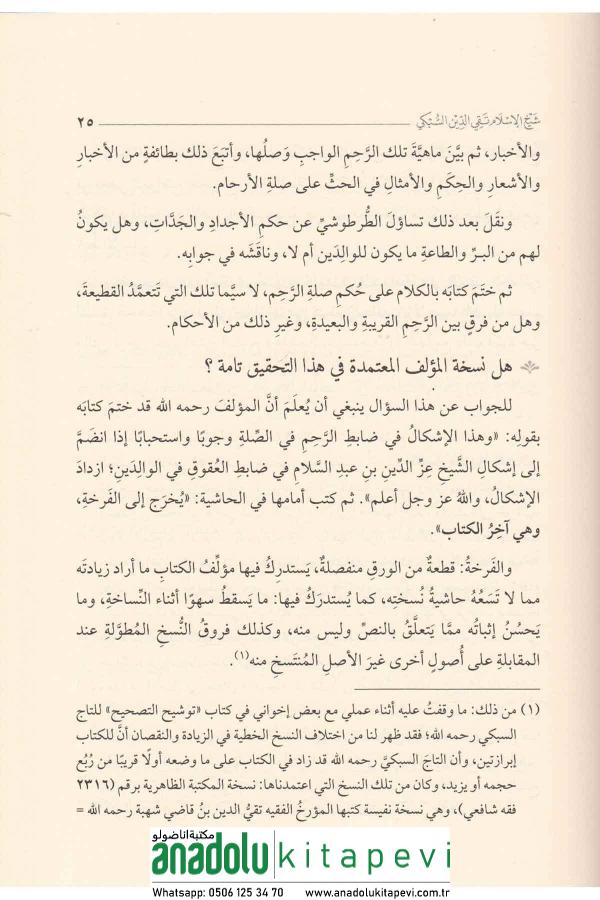 شَيْخُ الإِسْلَام تَقِيُّ الدِّيْن السُّبْكِي ٢٥
والأخبار، ثم بيَّنَ ماهيَّةَ تلك الرَّحِمِ الواجبِ وَصلُها، وأتبَعَ ذلك بطائفةٍ من الأخبارِ
والأشعارِ والحِكَمِ والأمثالِ في الحثِّ على صلةِ الأرحام.
ونقَلَ بعد ذلك تساؤلَ الطُّرطوشيِّ عن حكمِ الأجدادِ والجَدَّاتِ، وهل يكونُ
لهم من البـرِّ والطاعةِ ما يكون للوالِدَين أم لا، وناقَشَه في جوابِه.
ثم ختَمَ كتابَه بالكلام على حُكمِ صلةِ الرَّحِم، لا سيَّما تلك التي تَتعمَّدُ القطيعةَ،
وهل من فرقٍ بين الرَّحِمِ القريبةِ والبعيدةِ، وغيرِ ذلك من الأحكام.
هل نسخة المؤلف المعتمدة في هذا التحقيق تامة ؟
للجواب عن هذا السؤال ينبغي أن يُعلَمَ أنَّ المؤلفَ رحمه الله قد ختمَ كتابَه
بقولِه: «وهذا الإشكالُ في ضابطِ الرَّحِمِ في الصِّلةِ وجوبًا واستحبابًا إذا انضَمَّ
إلى إشكالِ الشَّيخِ عِزِّ الدِّينِ بنِ عبدِ السَّلامِ في ضابطِ العُقوقِ في الوالِدَينِ؛ ازدادَ
الإشكالُ، واللهُ عز وجل أعلم». ثم كتب أمامها في الحاشية: «يُخرَج إلى الفَرخةِ،
وهي آخِرُ الكتاب».
والفَرخةُ: قطعةٌ من الورقِ منفصلةٌ، يَستدرِكُ فيها مؤلِّفُ الكتابِ ما أراد زيادتَه
مما لا تَسَعُهُ حاشيةُ نُسختِه، كما يُستدرَكُ فيها: ما يَسقطُ سهوًا أثناء النِّساخةِ، وما
يَحسُنُ إثباتُه ممَّا يَتعلَّقُ بالنصِّ وليس منه، وكذلك فروقُ النُّسخِ المُطوَّلةِ عند
المقابلةِ على أُصولٍ أخرى غيرَ الأصلِ المُنتَسخِ منه(١).
(١) من ذلك: ما وقفتُ عليه أثناء عملي مع بعض إخواني في كتاب «توشيح التصحيح» للتاج
السبكي رحمه الله؛ فقد ظهر لنا من اختلاف النسخ الخطية في الزيادة والنقصان أنَّ للكتاب
إبرازتين، وأن التاجَ السبكيَّ رحمه الله قد زاد في الكتاب على ما وضعه أولًا قريبًا من رُبُع
حجمه أو يزيد، وكان من تلك النسخ التي اعتمدناها: نسخة المكتبة الظاهرية برقم (٢٣١٦
فقه شافعي)، وهي نسخة نفيسة كتبها المؤرخُ الفقيه تقيُّ الدين بنُ قاضي شهبة رحمه الله =
مكتبة اناضولو
anadolu kitapevi
Whatsapp: 0506 125 34 70 www.anadolukitapevi.com.tr